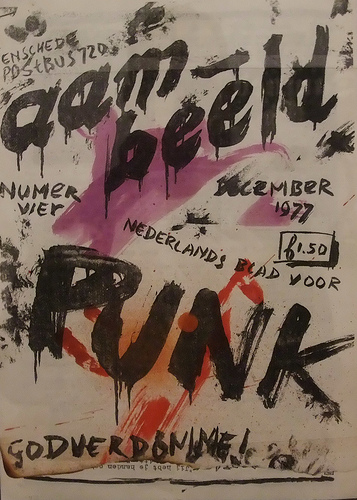 ENSCHEDE
POSTBUS 720
aam-
beeld
NUMER
VIER
DECEMBER
1977
NEDERLANDS BLAD VOOR
f1.50
PUNK
GODVERDOMME!